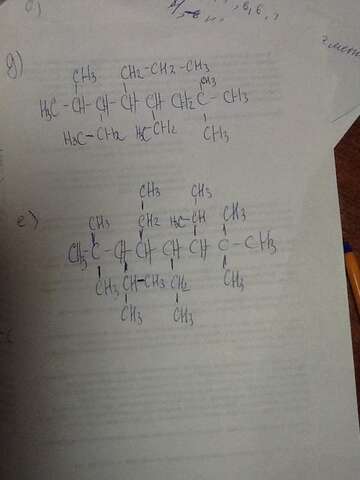 д)
CH3 CH2-CH2-CH3
H3C-CH-CH-CH-CH CH2 C-CH3
CH3
H3C-CH2 H3C CH2 CH3
CH3 CH3
е) CH3 CH2 H3C-CH CH3
CH3 C-CH-CH-CH-CH C-CH3
CH3 CH-CH3 CH2 CH3
CH3 CH3